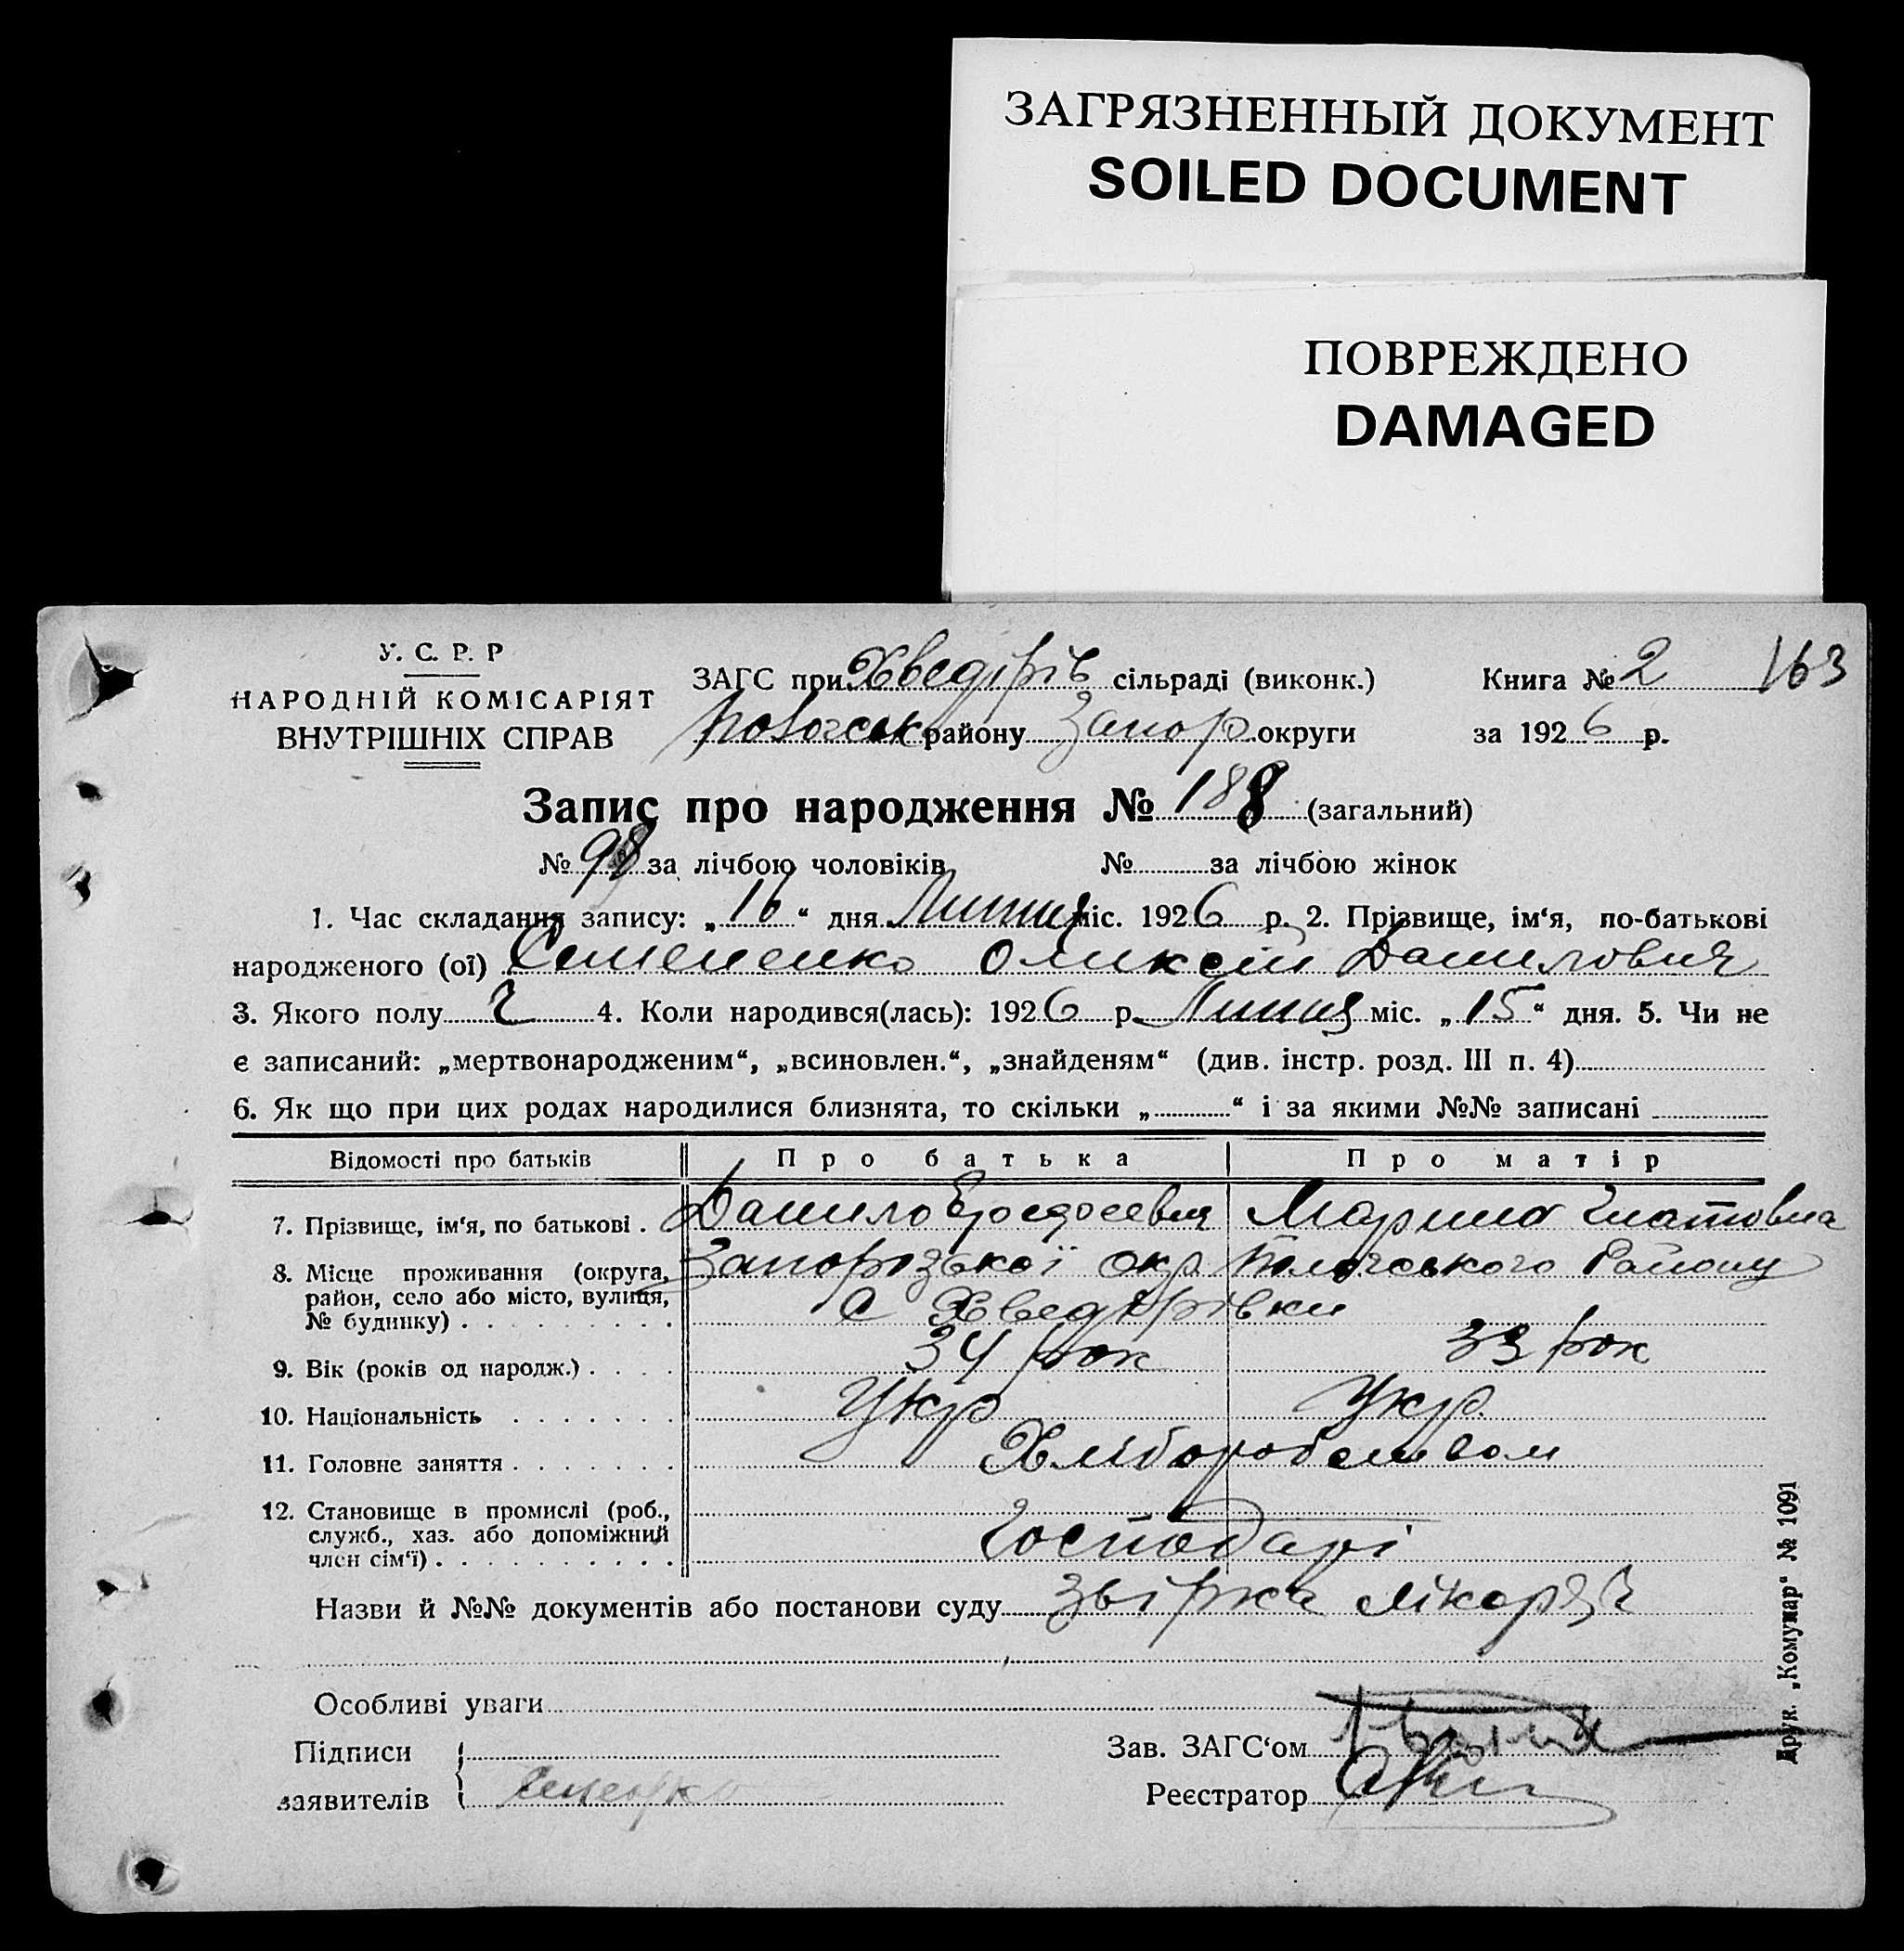 ЗАГРЯЗНЕННЫЙ ДОКУМЕНТ
SOILED DOCUMENT
ПОВРЕЖДЕНО
DAMAGED
У. С. Р. Р
НАРОДНІЙ КОМІСАРІЯТ
ВНУТРІШНІХ СПРАВ
ЗАГС при Хведірів сільраді (виконк.)
району Запор округи
Книга № 2 163
за 1926 р.
Запис про народження № 188 (загальний)
№ 98 за лічбою чоловіків № за лічбою жінок
1. Час складання запису: „ 16 “ дня Липня міс. 1926 р. 2. Прізвище, ім‘я, по-батькові
народженого (ої) Семененко Оликсій Данилович
3. Якого полу Ч 4. Коли народився(лась): 1926 р. Липня міс. „ 15 “ дня. 5. Чи не
є записаний: „мертвонародженим“, „всиновлен.“, „знайденям“ (див. інстр. розд. III п. 4)
6. Як що при цих родах народилися близнята, то скільки „ “ і за якими №№ записані
Відомості про батьків Про батька Про матір
7. Прізвище, ім‘я, по батькові . Данило Марина
8. Місце проживання (округа, Запорізької Окр Району
район, село або місто, вулиця, с Хведорівки
№ будинку) .
9. Вік (років од народж.) . 34 рок 33 рок
10. Національність . Укр Укр.
11. Головне заняття . Хліборобством
12. Становище в промислі (роб.,
служб., хаз. або допоміжний Господарі
член сім‘ї) .
Назви й №№ документів або постанови суду лікаря
Особливі уваги
Підписи Зав. ЗАГС‘ом
заявителів Реєстратор
Друк. „Комунар“ № 1091